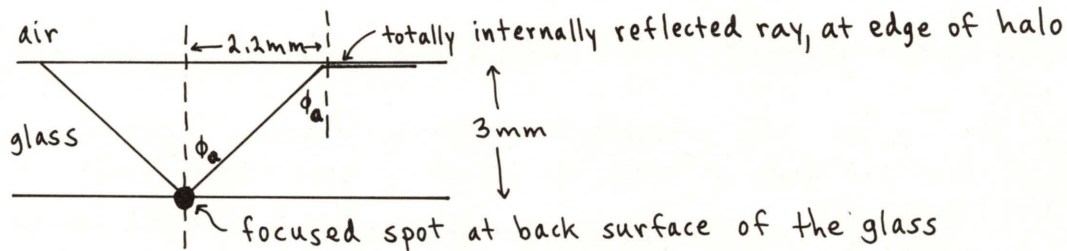 air
2.2mm
totally internally reflected ray, at edge of halo
ϕa
ϕa
3mm
glass
focused spot at back surface of the glass